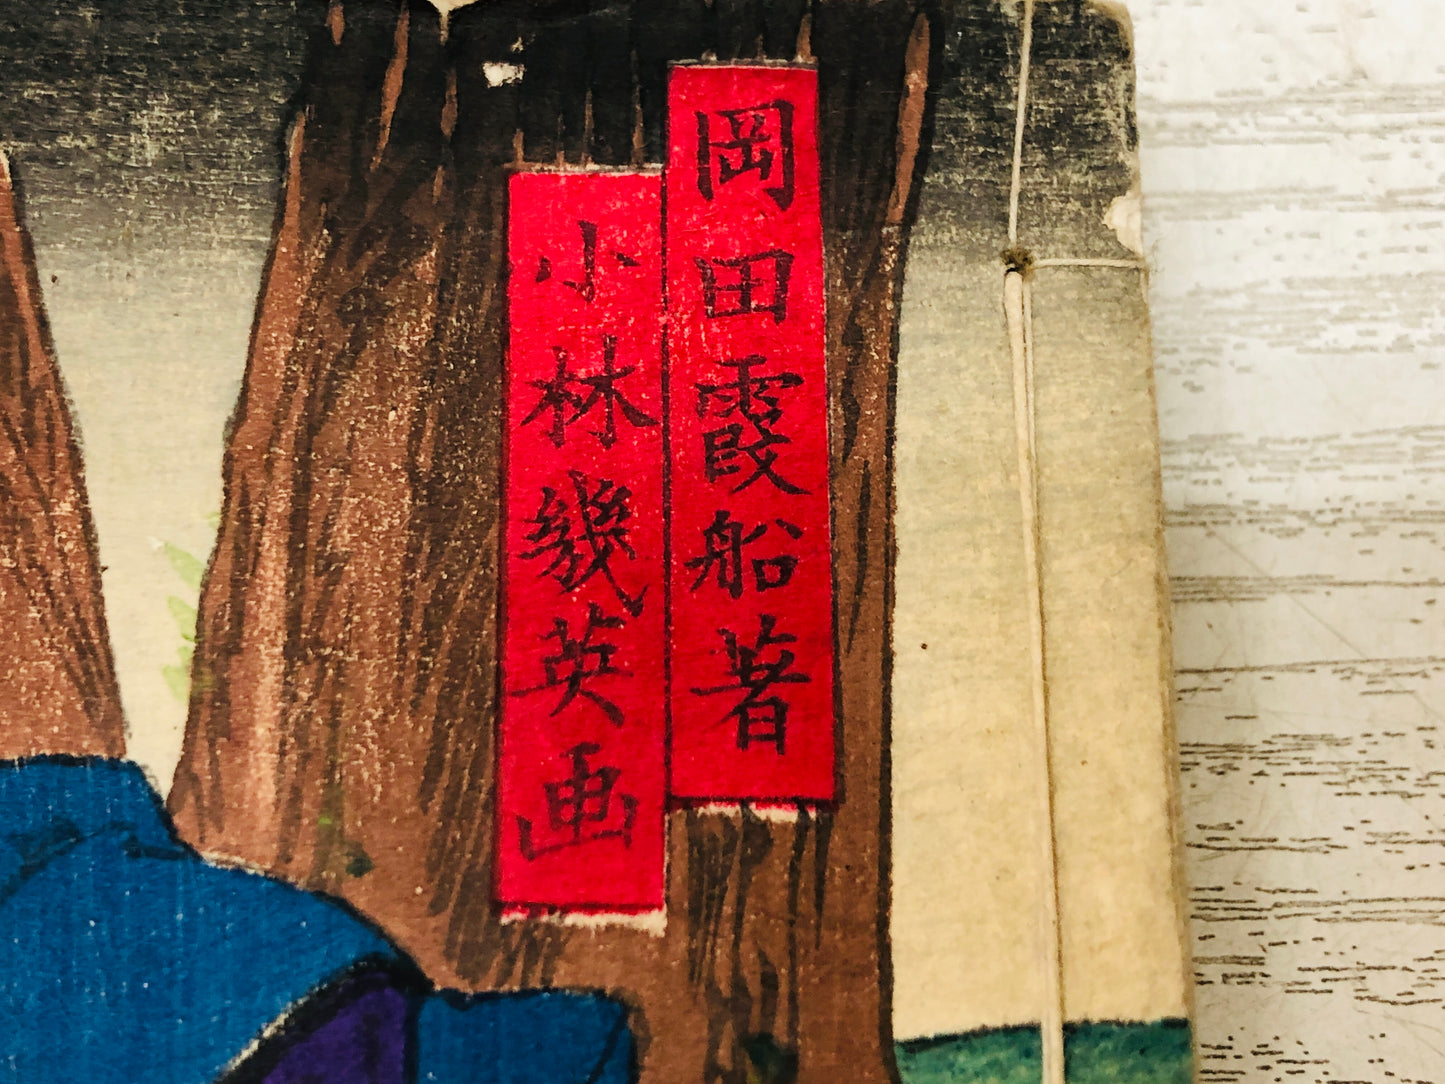 岡田霞船著
小林幾英画